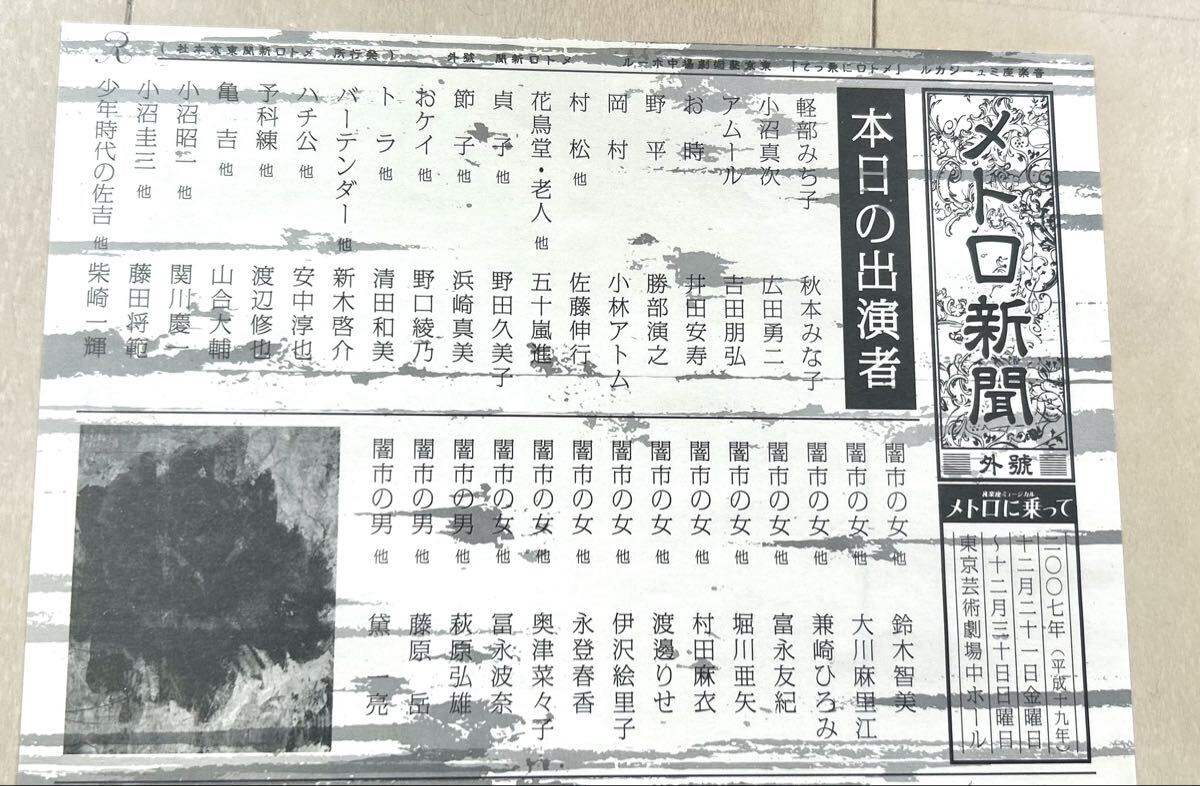 音楽座ミュージカル「メトロに乗って」 東京芸術劇場中ホール メトロ新聞 號外 (発行所 メトロ新聞東京本社)
メトロ新聞
外號
音楽座ミュージカル
メトロに乗って
二〇〇七年(平成十九年)
十二月二十一日金曜日
〜十二月三十日日曜日
東京芸術劇場中ホール
本日の出演者
軽部みち子 秋本みな子
小沼真次 広田勇二
アムール 吉田朋弘
お時 井田安寿
野平 勝部演之
岡村 小林アトム
村松 他 佐藤伸行
花鳥堂・老人 他 五十嵐進
貞子 他 野田久美子
節子 他 浜崎真美
おケイ 他 野口綾乃
トラ 他 清田和美
バーテンダー 他 新木啓介
ハチ公 他 安中淳也
予科練 他 渡辺修也
亀吉 他 山合大輔
小沼昭一 他 関川慶一
小沼圭三 他 藤田将範
少年時代の佐吉 他 柴崎一輝
闇市の女 他 鈴木智美
闇市の女 他 大川麻里江
闇市の女 他 兼崎ひろみ
闇市の女 他 富永友紀
闇市の女 他 堀川亜矢
闇市の女 他 村田麻衣
闇市の女 他 渡邊りせ
闇市の女 他 伊沢絵里子
闇市の女 他 永登春香
闇市の女 他 奥津菜々子
闇市の女 他 冨永波奈
闇市の男 他 萩原弘雄
闇市の男 他 藤原岳
闇市の男 他 黛一亮
R